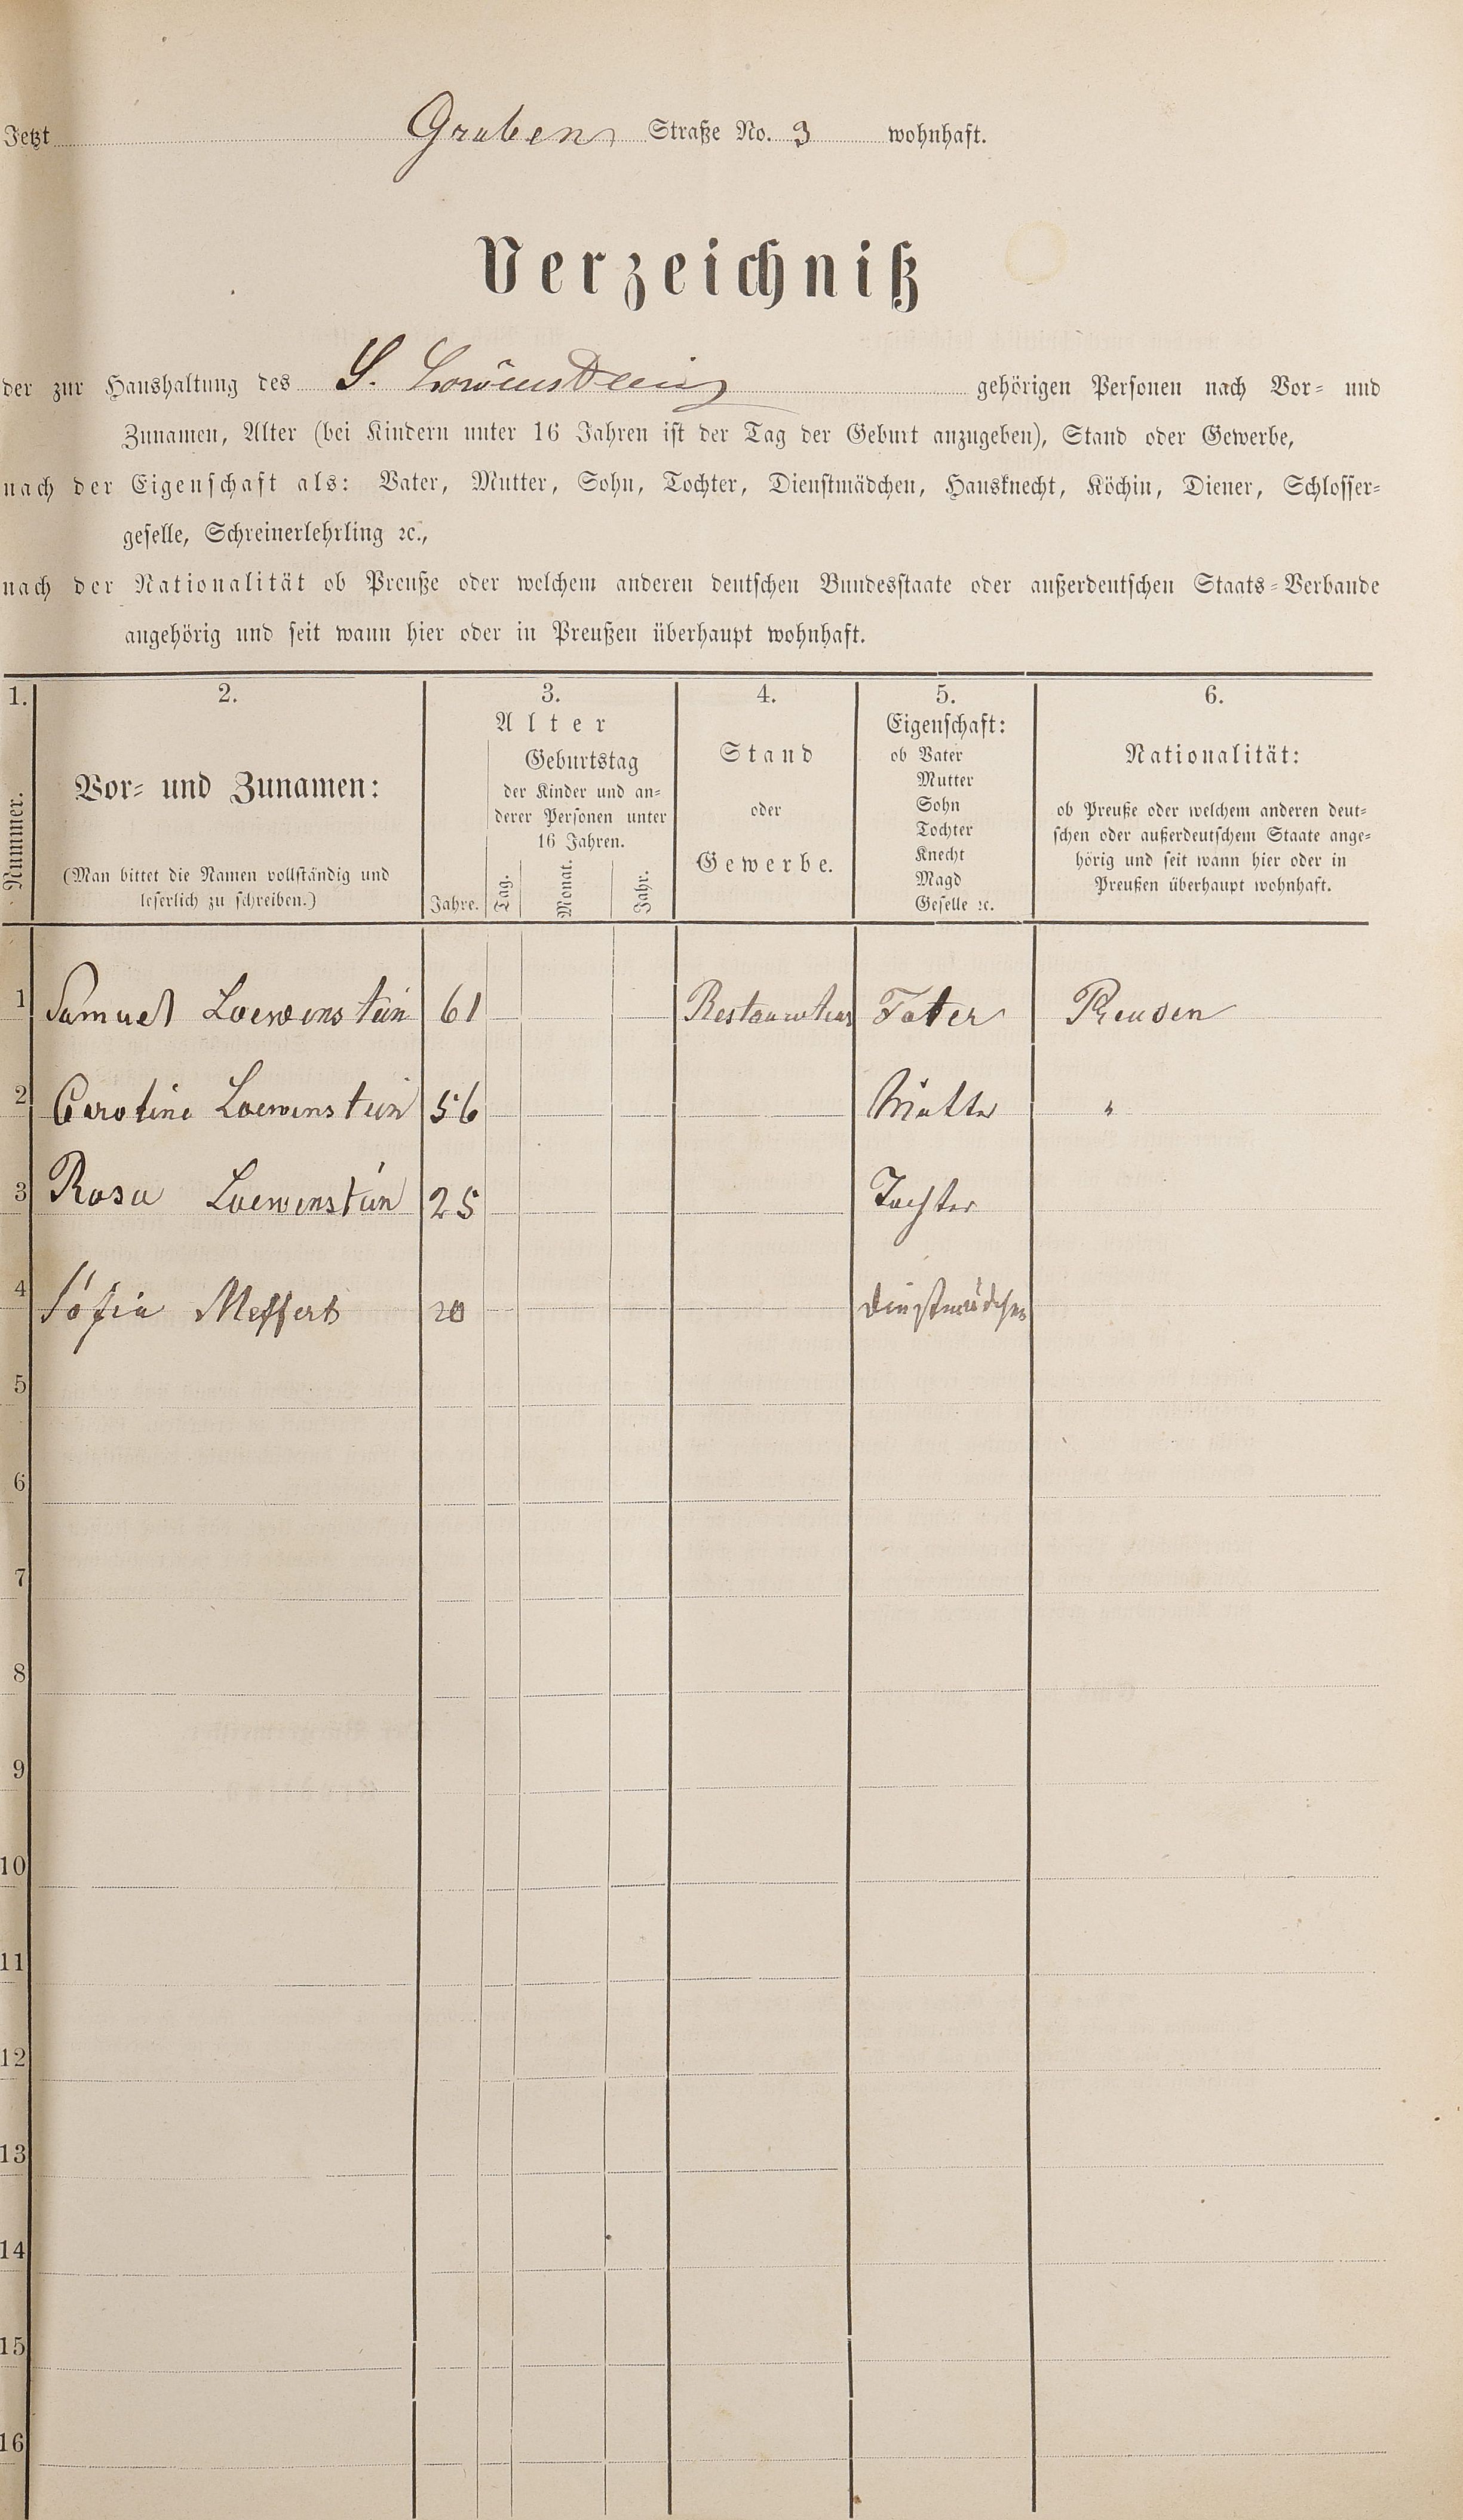 Jetzt Graben Straße No. 3 wohnhaft.
Verzeichniß
der zur Haushaltung des S. Löwenstein gehörigen Personen nach Vor- und
Zunamen, Alter (bei Kindern unter 16 Jahren ist der Tag der Geburt anzugeben), Stand oder Gewerbe,
nach der Eigenschaft als: Vater, Mutter, Sohn, Tochter, Dienstmädchen, Hausknecht, Köchin, Diener, Schlosser-
geselle, Schreinerlehrling ꝛc.,
nach der Nationalität ob Preuße oder welchem anderen deutschen Bundesstaate oder außerdeutschen Staats-Verbande
angehörig und seit wann hier oder in Preußen überhaupt wohnhaft.
1. 2. 3. 4. 5. 6.
Nummer.
Vor- und Zunamen:
(Man bittet die Namen vollständig und
leserlich zu schreiben.)
Alter
Jahre.
Geburtstag
der Kinder und an-
derer Personen unter
16 Jahren.
Tag. Monat. Jahr.
Stand
oder
Gewerbe.
Eigenschaft:
ob Vater
Mutter
Sohn
Tochter
Knecht
Magd
Geselle ꝛc.
Nationalität:
ob Preuße oder welchem anderen deut-
schen oder außerdeutschem Staate ange-
hörig und seit wann hier oder in
Preußen überhaupt wohnhaft.
1 Samuel Loewenstein 61 Restaurateur Fater Preusen
2 Caroline Loewenstein 56 Mutter "
3 Rosa Loewenstein 25 Tochter
4 Sofia Meffert 20 Dinstmädchen
5
6
7
8
9
10
11
12
13
14
15
16